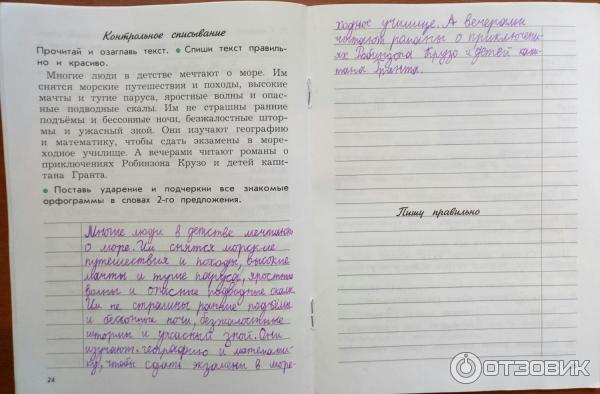 Контрольное списывание
Прочитай и озаглавь текст. • Спиши текст правиль-
но и красиво.
Многие люди в детстве мечтают о море. Им
снятся морские путешествия и походы, высокие
мачты и тугие паруса, яростные волны и опас-
ные подводные скалы. Им не страшны ранние
подъёмы и бессонные ночи, безжалостные штор-
мы и ужасный зной. Они изучают географию
и математику, чтобы сдать экзамены в море-
ходное училище. А вечерами читают романы о
приключениях Робинзона Крузо и детей капи-
тана Гранта.
• Поставь ударение и подчеркни все знакомые
орфограммы в словах 2-го предложения.
Многие люди в детстве мечтают
о море. Им снятся морские
путешествия и походы, высокие
мачты и тугие паруса, яростные
волны и опасные подводные скалы.
Им не страшны ранние подъёмы
и бессонные ночи, безжалостные
штормы и ужасный зной. Они
изучают географию и математи-
ку, чтобы сдать экзамены в море-
24
ходное училище. А вечерами
читают романы о приключени-
ях Робинзона Крузо и детей капи-
тана Гранта.
Пишу правильно
ОТЗОВИК